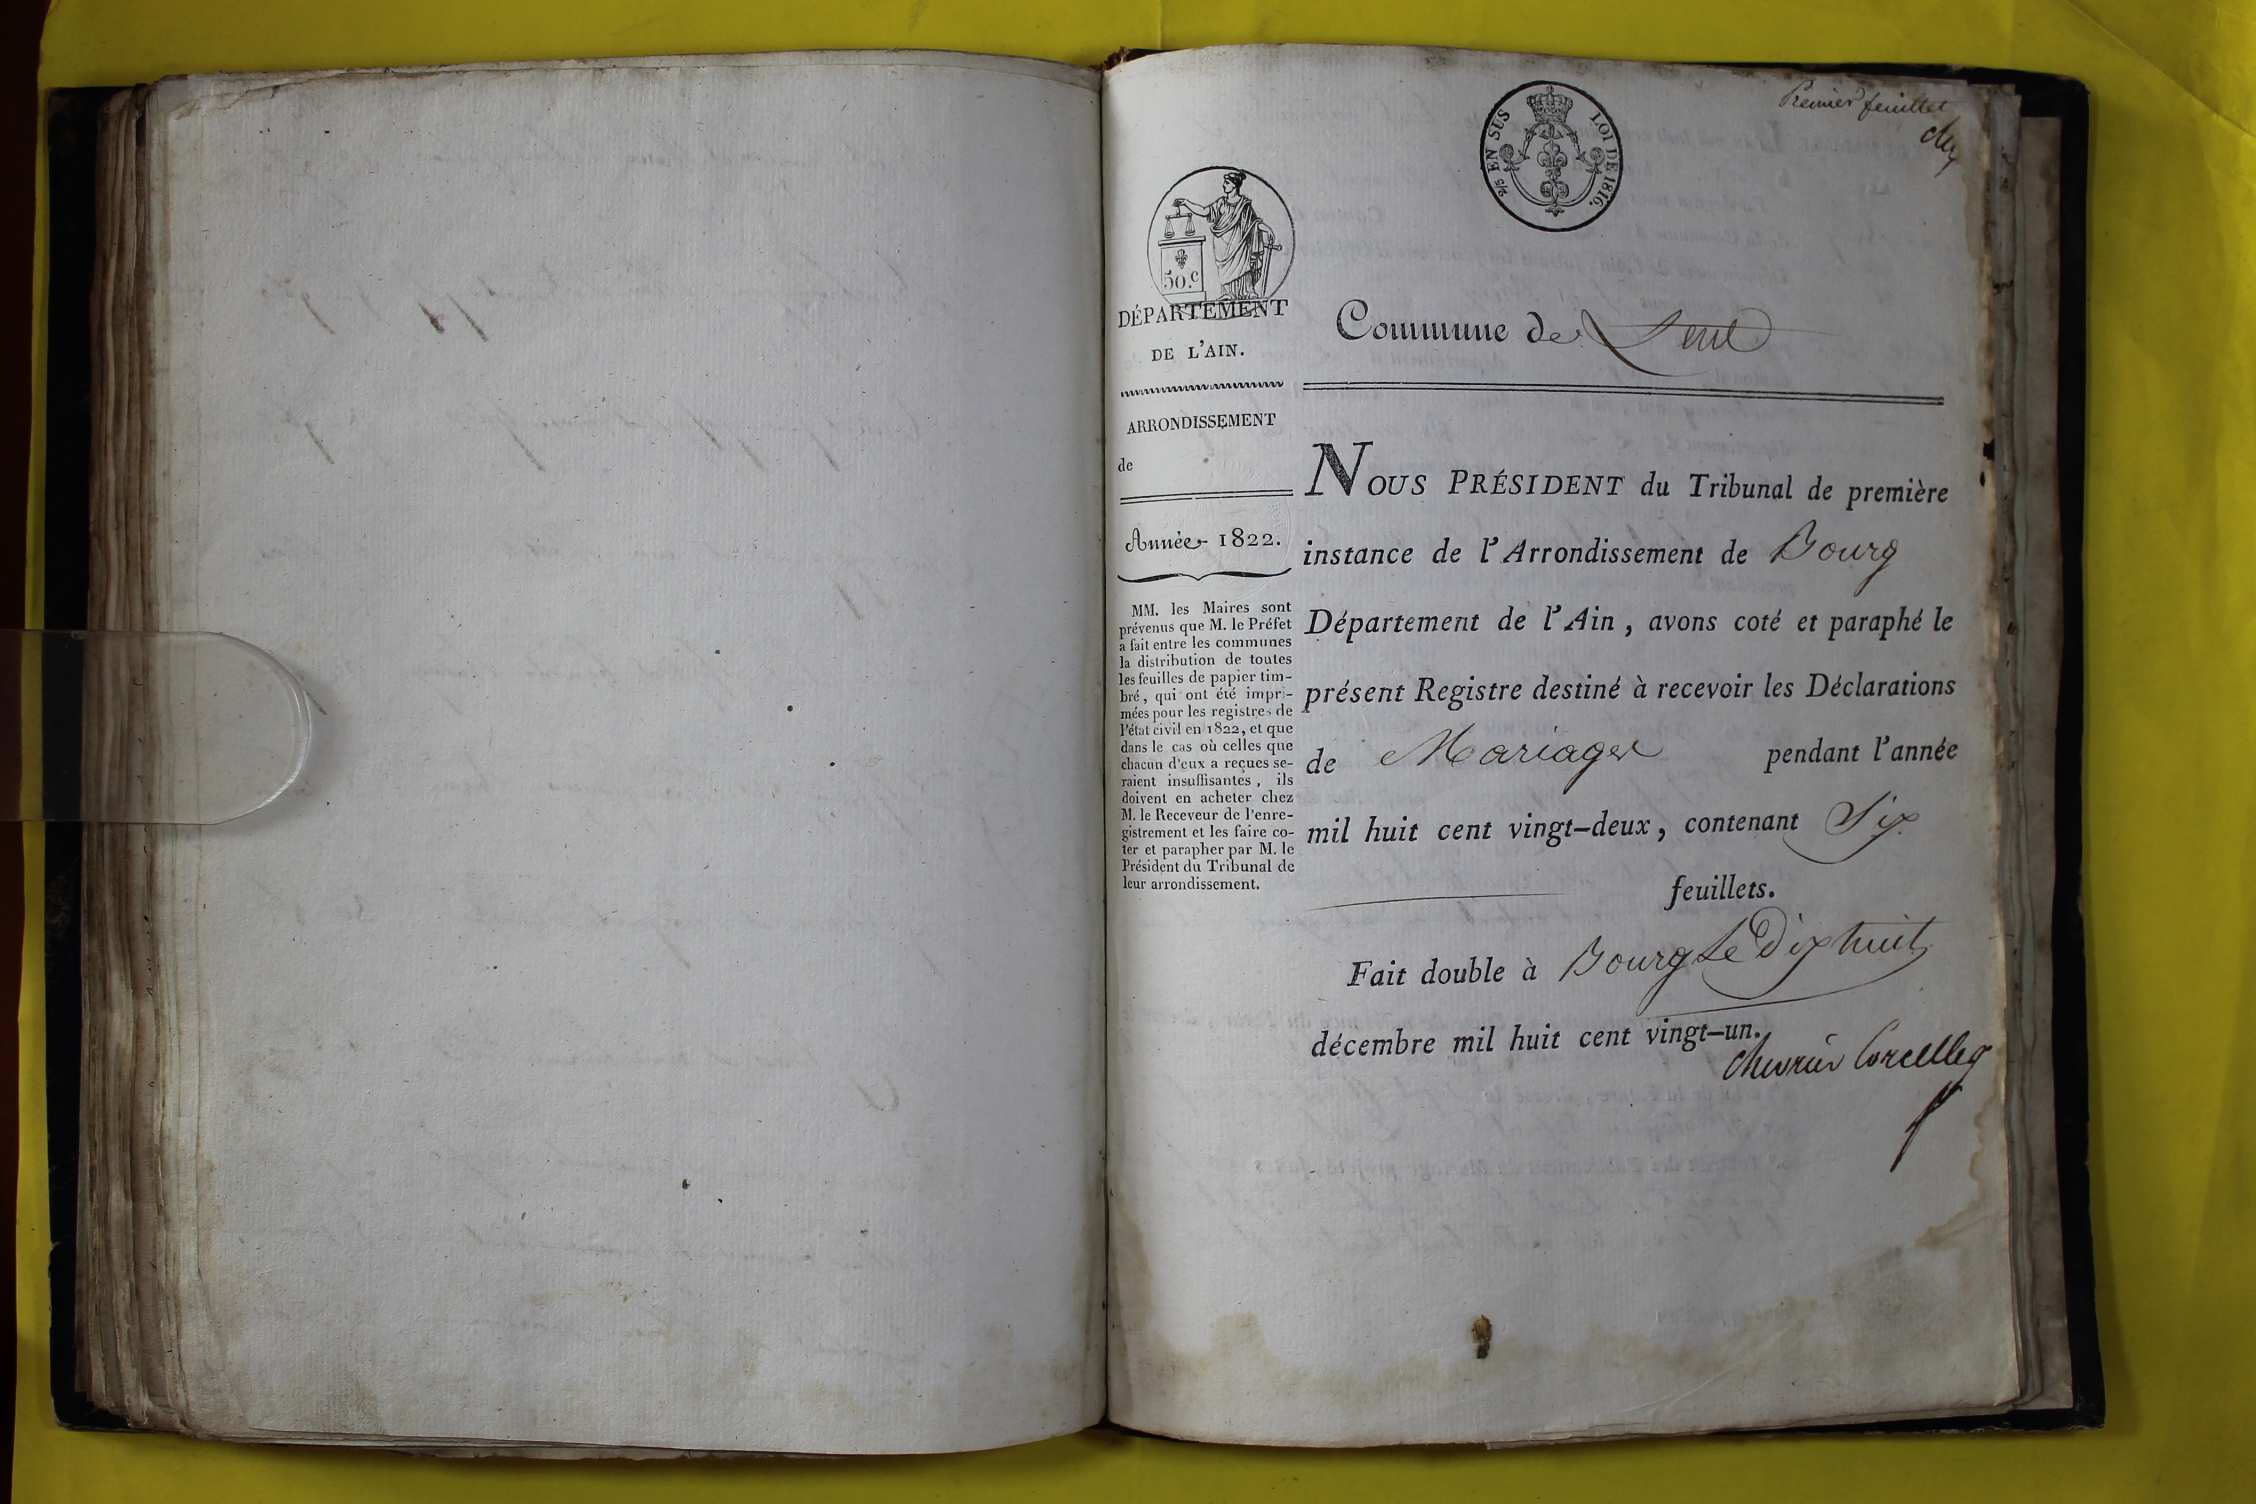 Premier feuillet
2/5 EN SUS LOI DE 1816.
50.c
DÉPARTEMENT
DE L'AIN.
Commune de
ARRONDISSEMENT
de
Année 1822.
MM. les Maires sont
prévenus que M. le Préfet
a fait entre les communes
la distribution de toutes
les feuilles de papier tim-
bré, qui ont été impri-
mées pour les registres de
l'état civil en 1822, et que
dans le cas où celles que
chacun d'eux a reçues se-
raient insuffisantes, ils
doivent en acheter chez
M. le Receveur de l'enre-
gistrement et les faire co-
ter et parapher par M. le
Président du Tribunal de
leur arrondissement.
NOUS PRÉSIDENT du Tribunal de première
instance de l'Arrondissement de Bourg
Département de l'Ain, avons coté et paraphé le
présent Registre destiné à recevoir les Déclarations
de Mariages pendant l'année
mil huit cent vingt-deux, contenant Six
feuillets.
Fait double à Bourg Le Dix huit
décembre mil huit cent vingt-un.
Chevrier Corcelles